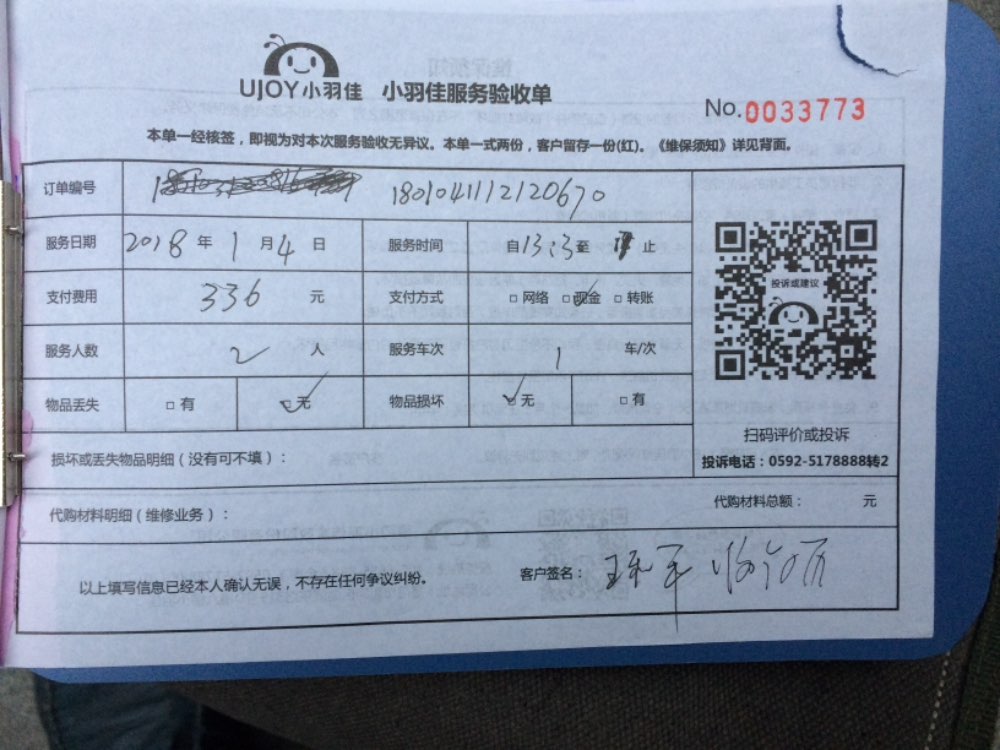 UJOY小羽佳 小羽佳服务验收单
No.0033773
本单一经核签，即视为对本次服务验收无异议。本单一式两份，客户留存一份(红)。《维保须知》详见背面。
订单编号 1801041112120670
服务日期 2018 年 1 月 4 日 服务时间 自 13:3 至 止
支付费用 336 元 支付方式 □ 网络 □ 现金 □ 转账
服务人数 2 人 服务车次 1 车/次
物品丢失 □ 有 □ 无 物品损坏 □ 无 □ 有
投诉或建议
扫码评价或投诉
投诉电话：0592-5178888转2
损坏或丢失物品明细（没有可不填）：
代购材料明细（维修业务）： 代购材料总额： 元
以上填写信息已经本人确认无误，不存在任何争议纠纷。 客户签名：